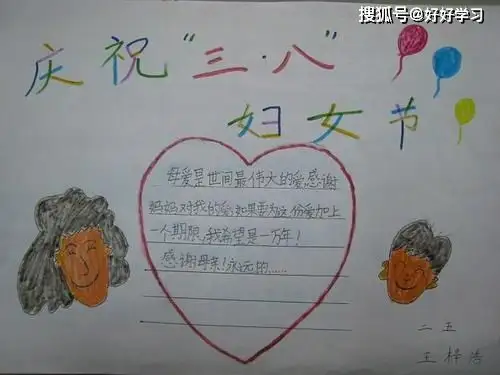 搜狐号@好好学习
庆祝“三·八”
妇女节
母爱是世间最伟大的爱感谢
妈妈对我的爱,如果要为这份爱加上
一个期限,我希望是一万年!
感谢母亲!永远的……
二五
王梓浩